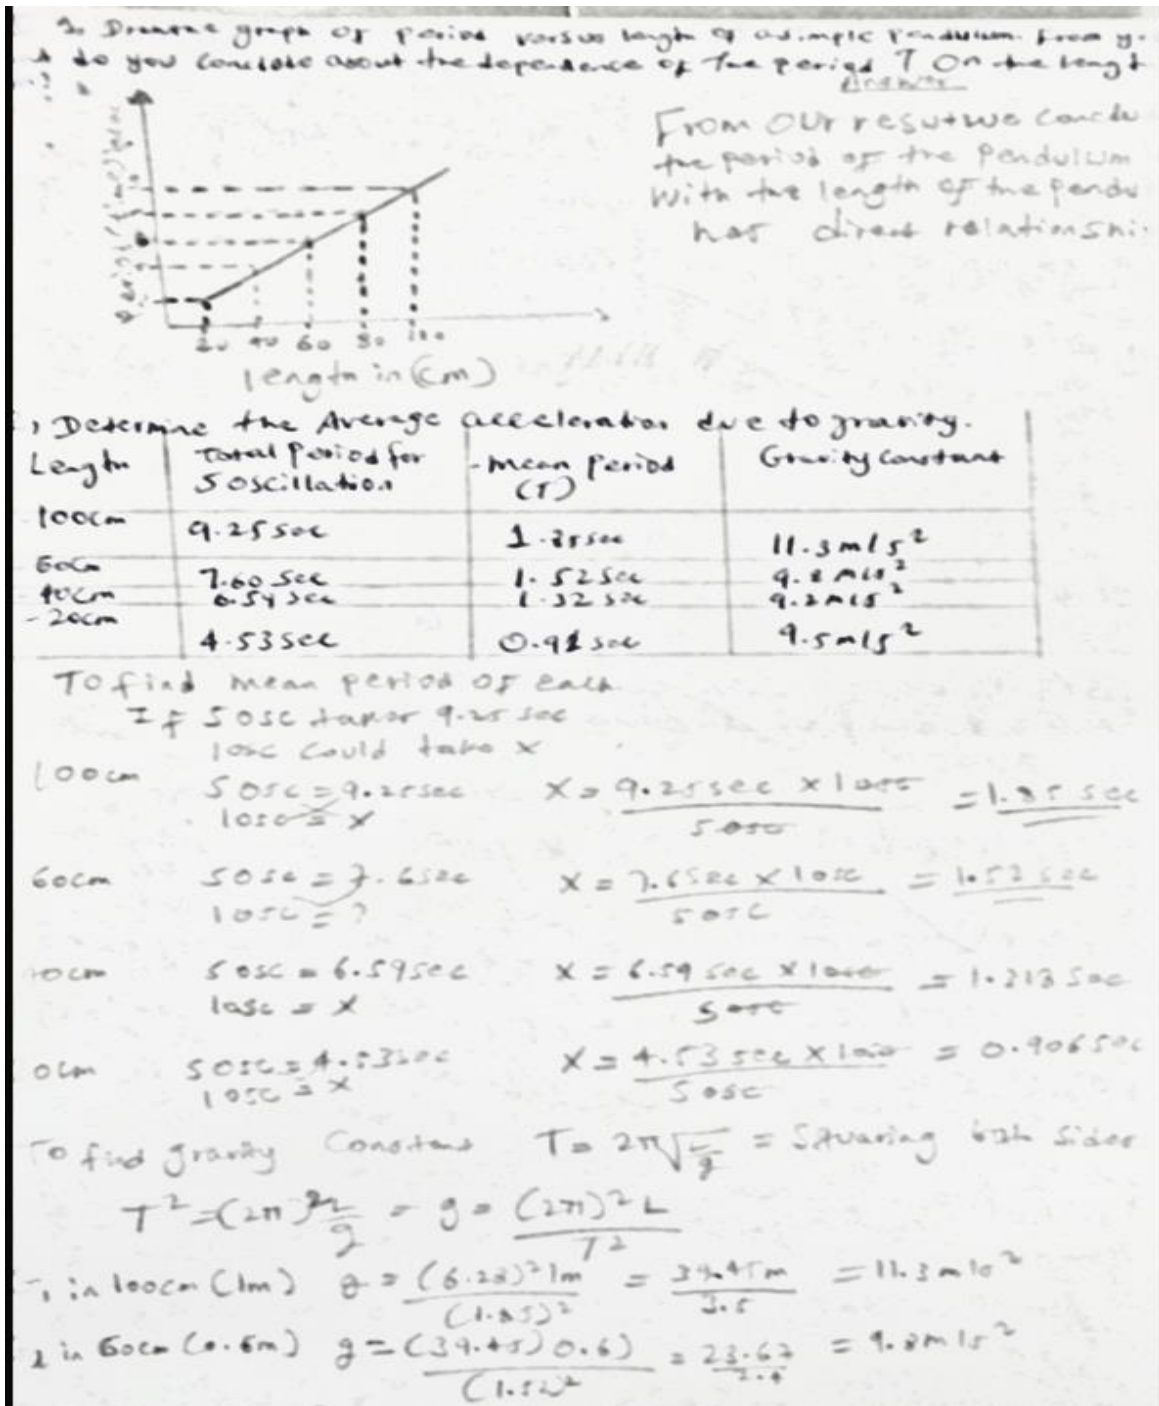 2. Draw the graph of period versus length of a simple pendulum. from y
do you conclude about the dependence of the period T on the lengt
Answer
From our resut we conclu
the period of the pendulum
With the length of the pendu
has direct relationshi
20 40 60 80 100
length in (cm)
, Determine the Average acceleration due to gravity.
Length Total Period for 5 oscillation - mean Period (T) Gravity Constant
100cm 9.25 sec 1.85 sec 11.3 m/s²
60cm 7.60 sec 1.52 sec 9.8 m/s²
40cm 6.59 sec 1.32 sec 9.2 m/s²
- 20cm 4.53 sec 0.91 sec 9.5 m/s²
To find mean period of each
If 5 osc takes 9.25 sec
1osc could take x
100cm 5 osc = 9.25sec x = 9.25 sec x 1osc / 5 osc = 1.85 sec
1osc = x
60cm 5 osc = 7.6 sec x = 7.6 sec x 1osc / 5 osc = 1.52 sec
1 osc = ?
0cm 5 osc = 6.59 sec x = 6.59 sec x 1osc / 5 osc = 1.318 sec
1osc = x
0cm 5 osc = 4.53 sec x = 4.53 sec x 1osc / 5 osc = 0.906 sec
1 osc = x
To find gravity Constant T = 2π√L/g = Squaring both sides
T² = (2π)² L/g = g = (2π)² L / T²
1 in 100cm (1m) g = (6.28)² 1m / (1.85)² = 39.45m / 3.5 = 11.3 m/s²
2 in 60cm (0.6m) g = (39.45) 0.6) / (1.52)² = 23.67 / 2.4 = 9.8 m/s²